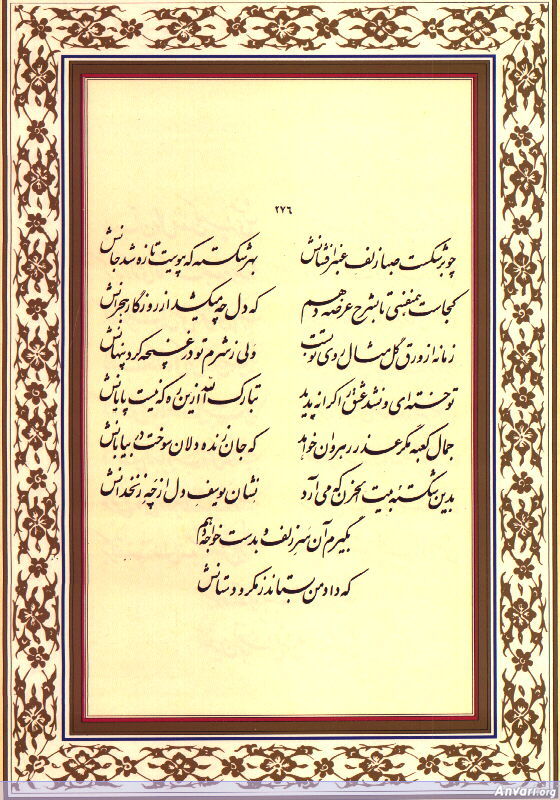 ٢٧٦
چو برشکست صبا زلف عنبرافشانش بهر شکسته که پیوست تازه شد جانش
کجاست همنفسی تا بشرح عرضه دهم که دل چه میکشد از روزگار هجرانش
زمانه از ورق گل مثال روی تو بست ولی ز شرم تو در غنچه کرد پنهانش
تو خفته‌ای و نشد عشق را کرانه پدید تبارک الله ازین ره که نیست پایانش
جمال کعبه مگر عذر رهروان خواهد که جان زنده دلان سوخت در بیابانش
بدین شکسته بیت الحزن که می آرد نشان یوسف دل از چه زنخدانش
بگیرم آن سر زلف و بدست خواجه دهم
که داد من بستاند ز مکر و دستانش
Anvari.org